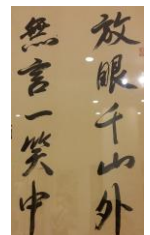 放眼千山外
無言一笑中